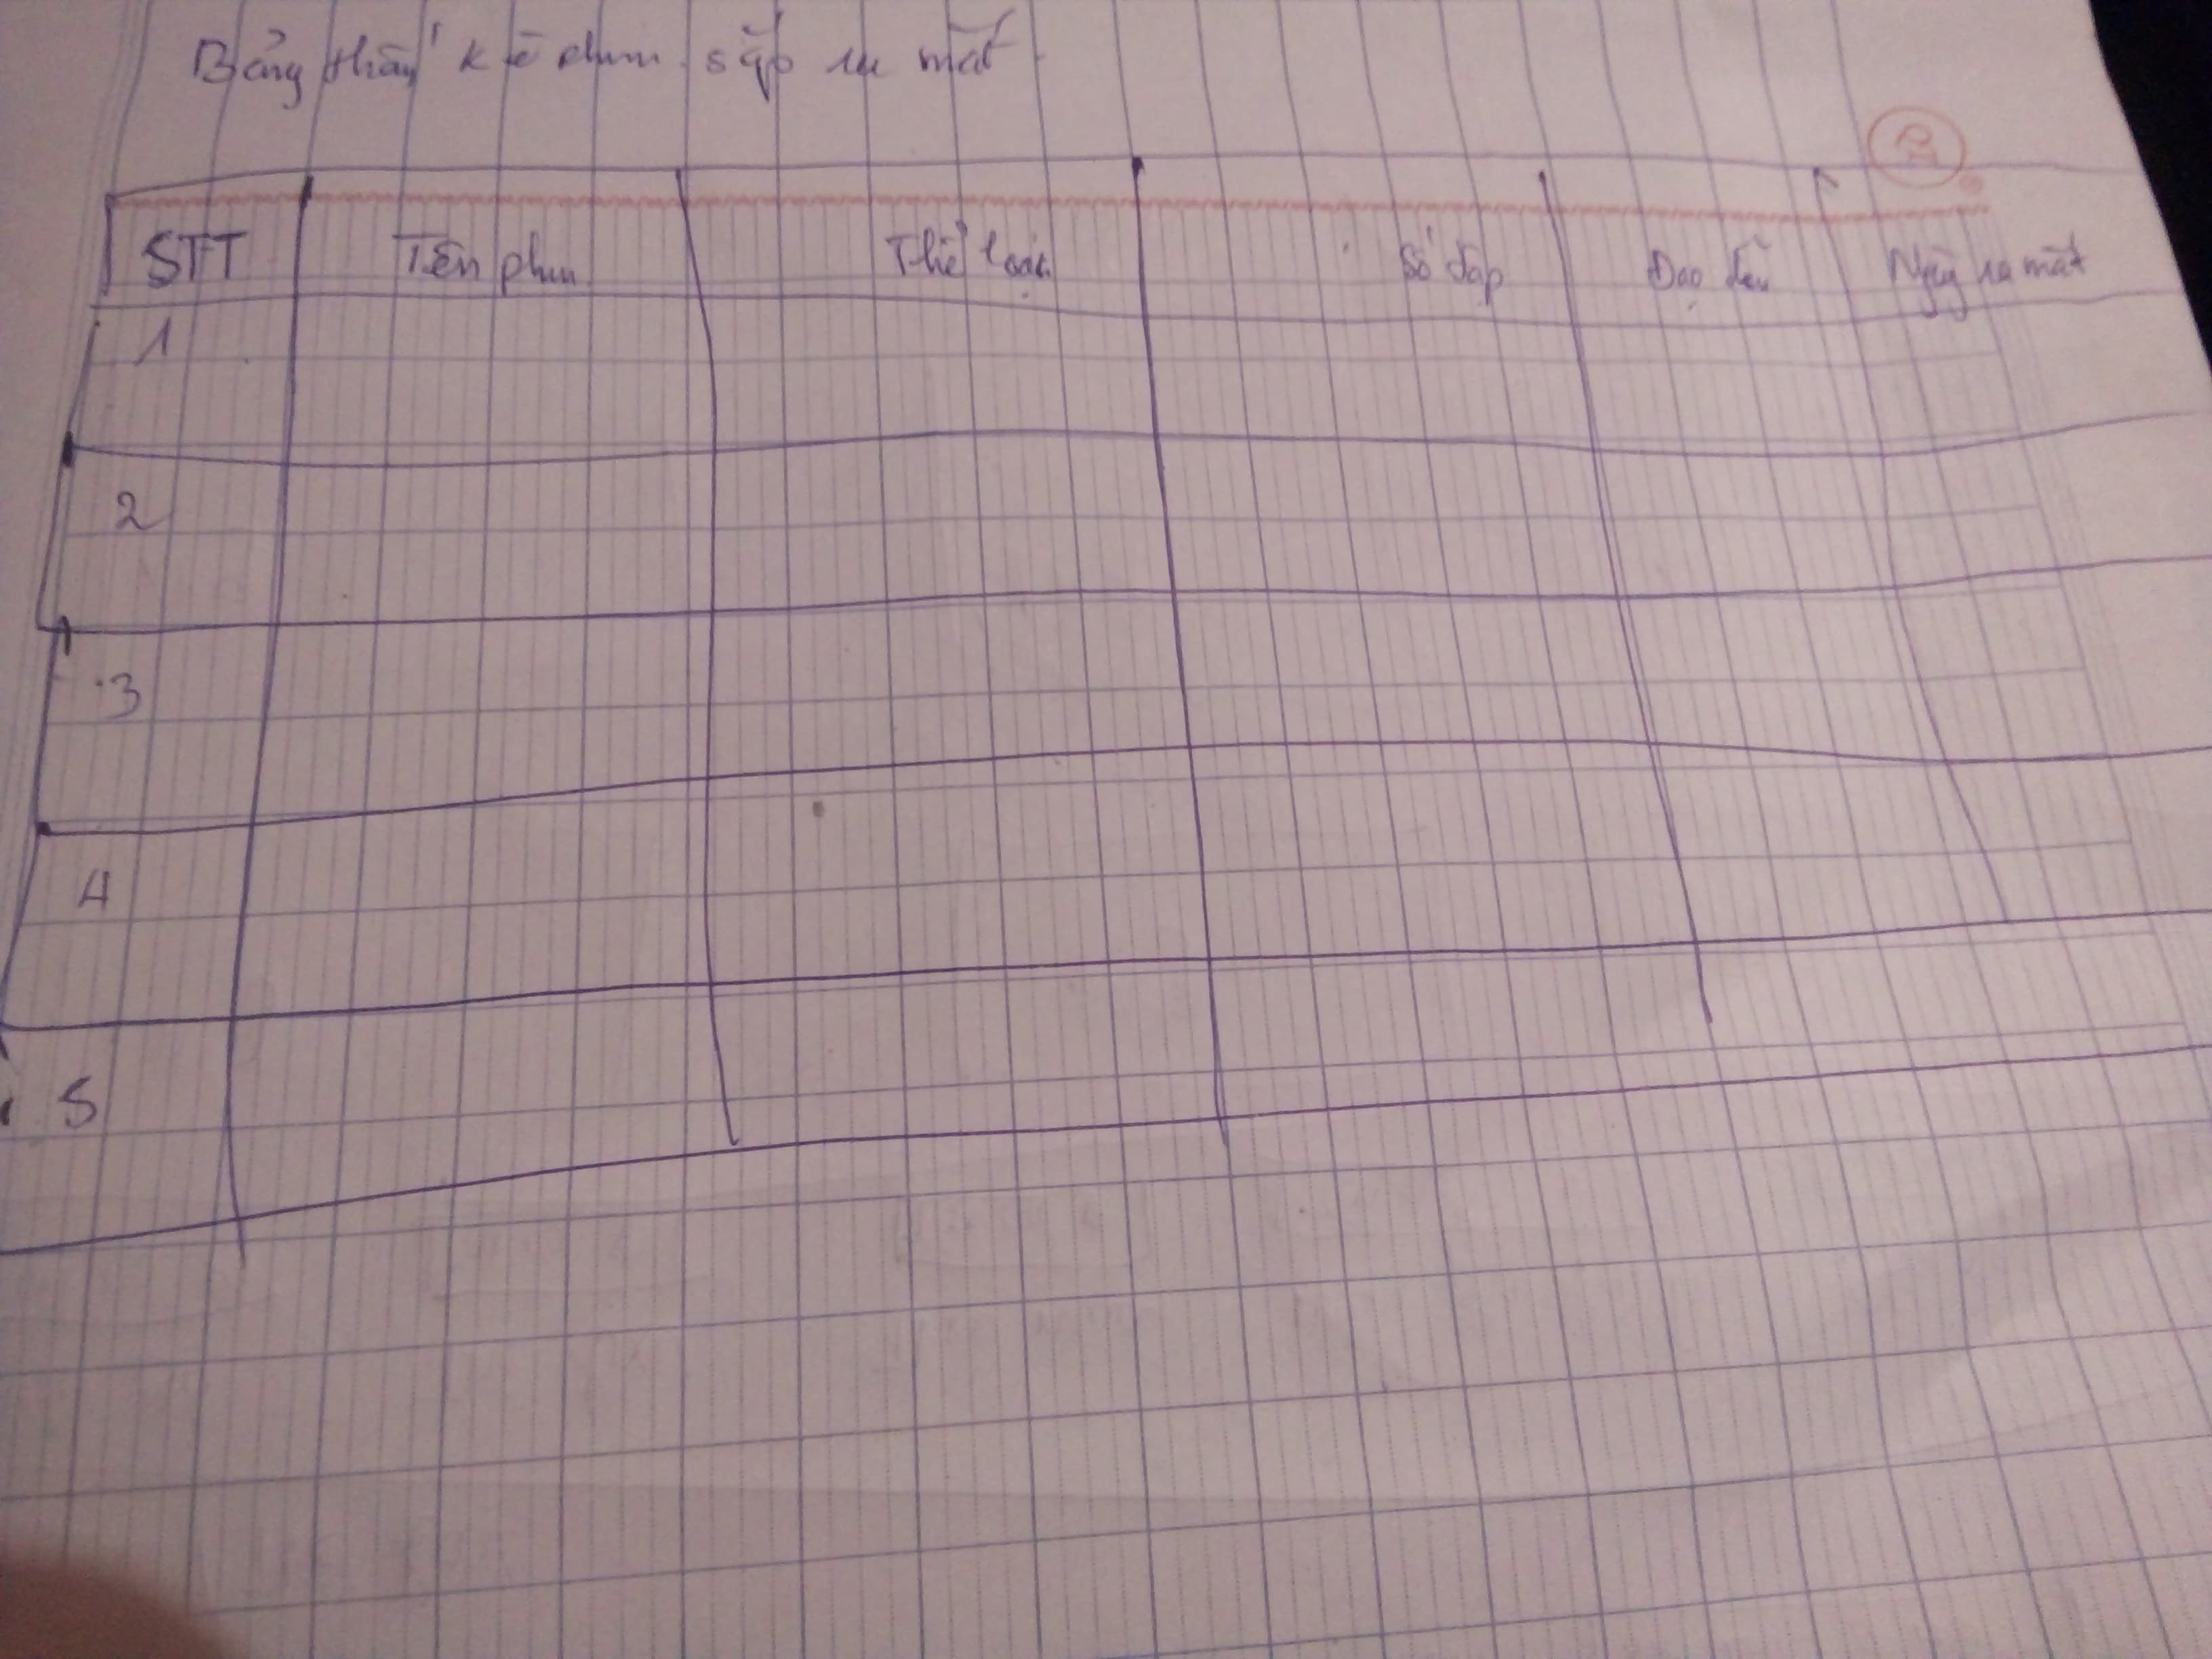 Bảng thống kê phim sắp ra mắt
STT Tên phim Thể loại Số tập Đạo diễn Ngày ra mắt
1
2
3
4
5